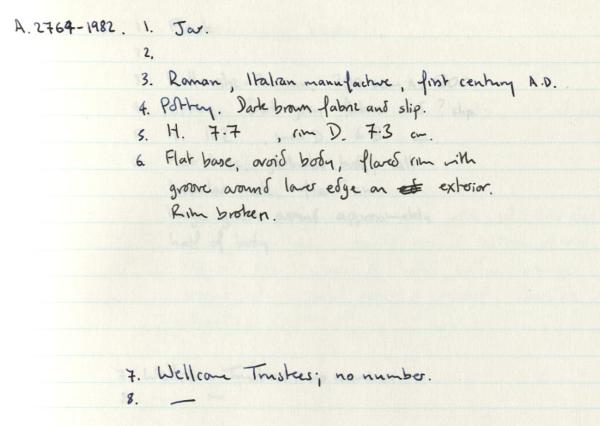 A.2764-1982. 1. Jar.
2.
3. Roman, Italian manufacture, first century A.D.
4. Pottery. Dark brown fabric and slip.
5. H. 7.7 , rim D. 7.3 cm.
6. Flat base, ovoid body, flared rim with
groove around lower edge on exterior.
Rim broken.
7. Wellcome Trustees; no number.
8. —